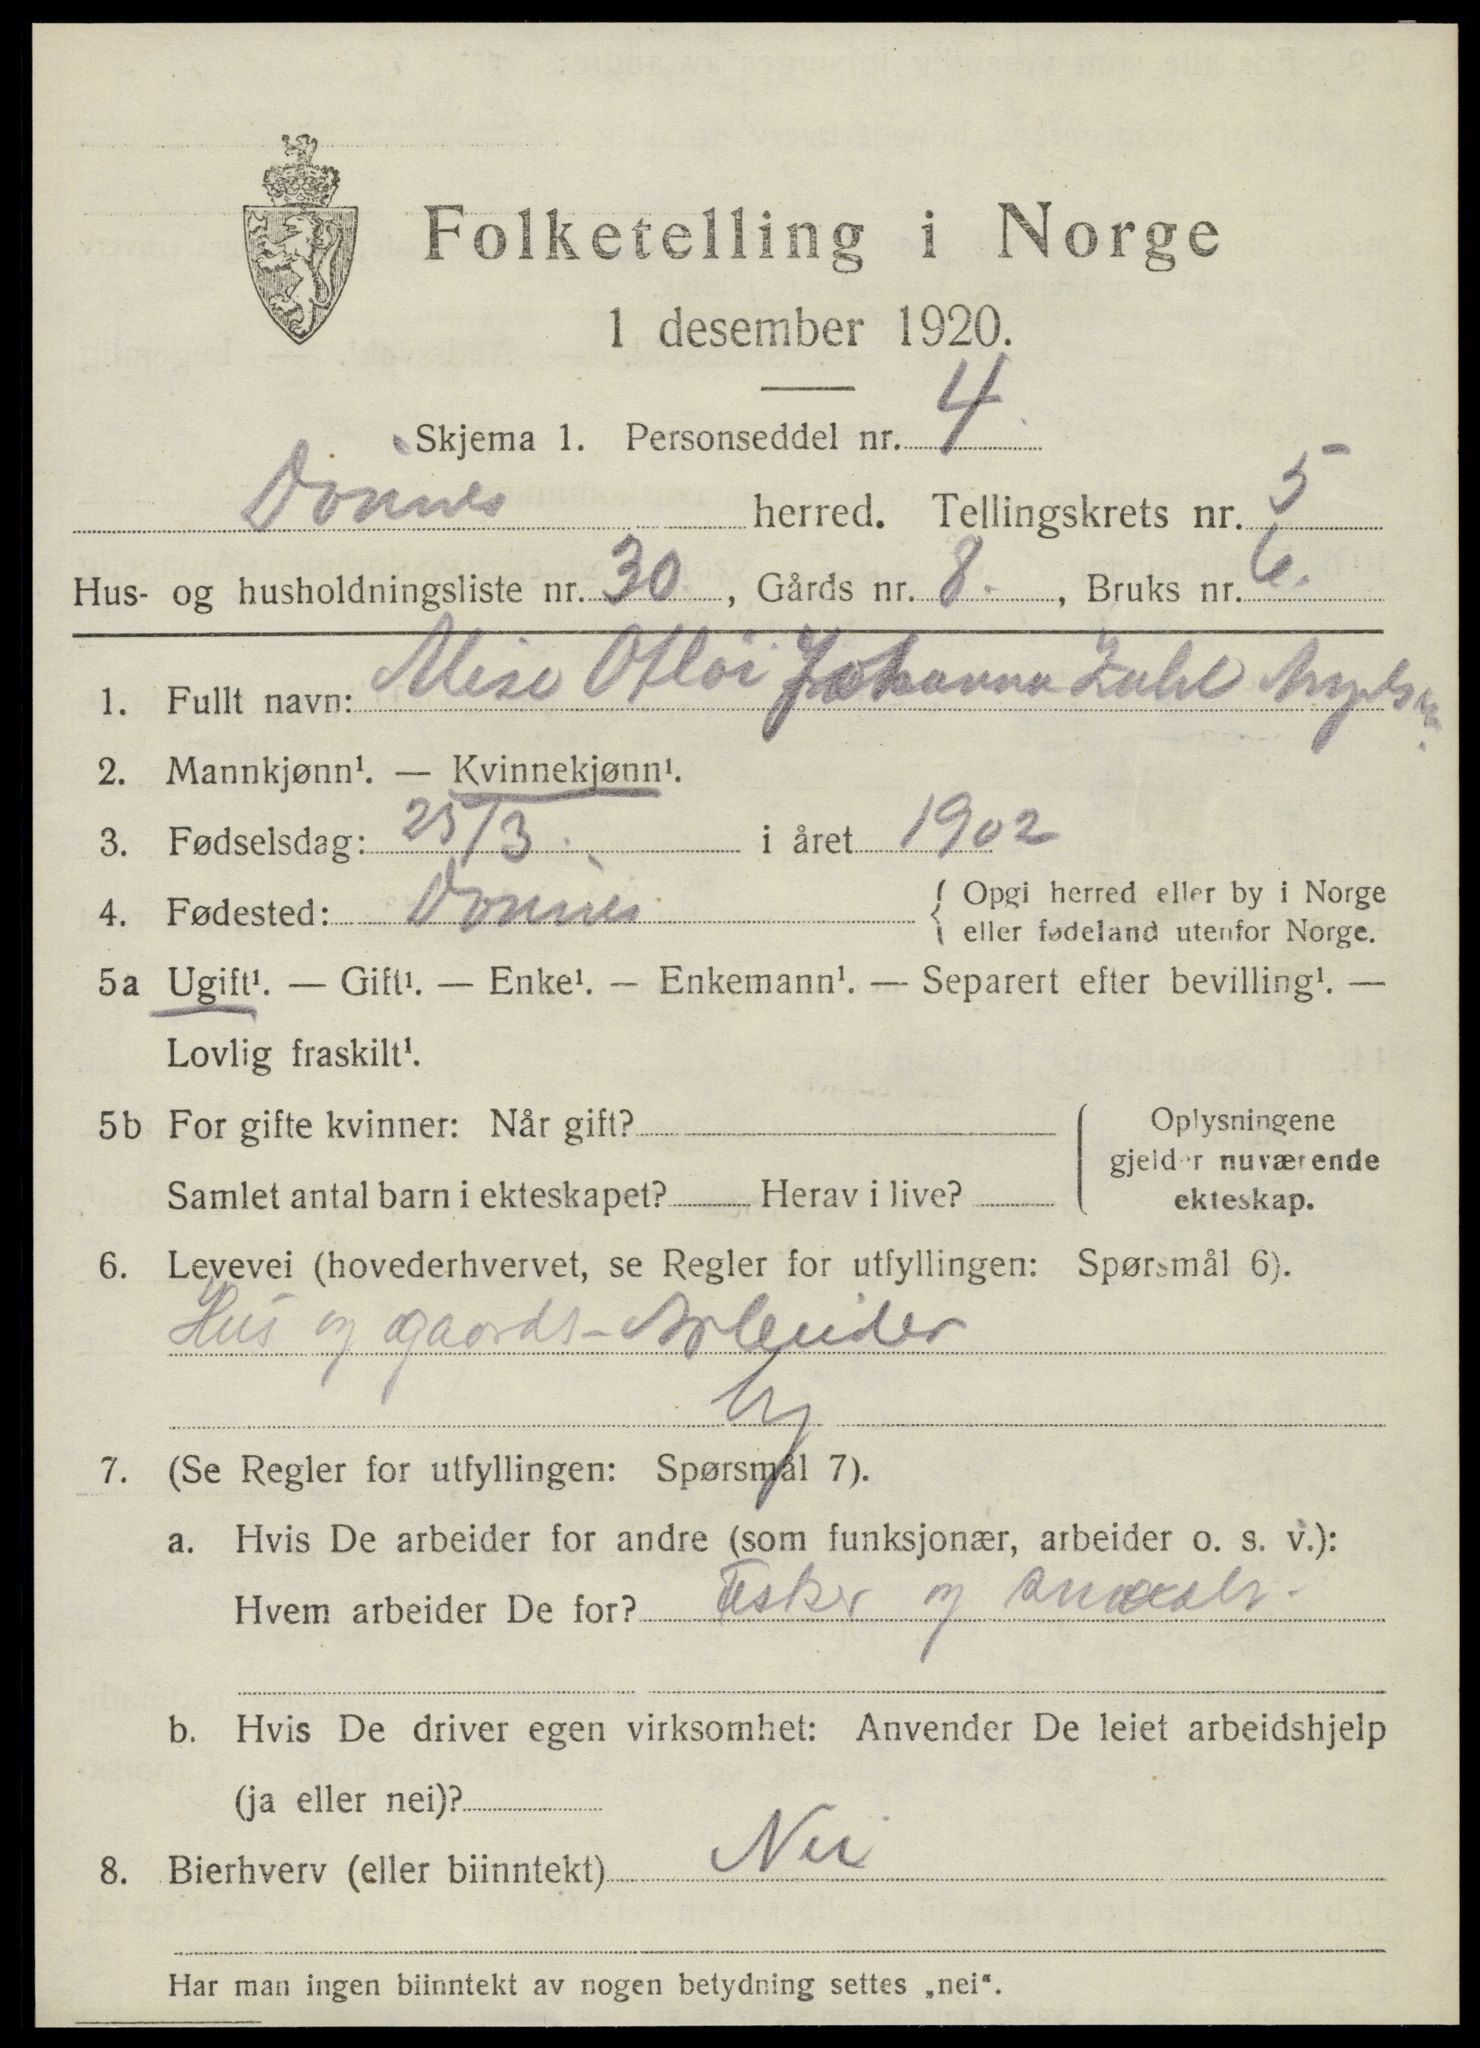 Folketelling i Norge
1 desember 1920.
Skjema 1. Personseddel nr. 4
Dønnes herred. Tellingskrets nr. 5
Hus- og husholdningsliste nr. 30, Gårds nr. 8., Bruks nr. 6.
1. Fullt navn: Johanna Zahl
2. Mannkjønn¹. — Kvinnekjønn¹.
3. Fødselsdag: 25/3. i året 1902
4. Fødested: Dønnes { Opgi herred eller by i Norge
eller fødeland utenfor Norge.
5a Ugift¹. — Gift¹. — Enke¹. — Enkemann¹. — Separert efter bevilling¹. —
Lovlig fraskilt¹.
5b For gifte kvinner: Når gift?
Samlet antal barn i ekteskapet? Herav i live?
Oplysningene
gjelder nuværende
ekteskap.
6. Levevei (hovederhvervet, se Regler for utfyllingen: Spørsmål 6).
Hus og gaards-Arbeider
7. (Se Regler for utfyllingen: Spørsmål 7).
a. Hvis De arbeider for andre (som funksjonær, arbeider o. s. v.):
Hvem arbeider De for? og
b. Hvis De driver egen virksomhet: Anvender De leiet arbeidshjelp
(ja eller nei)?
8. Bierhverv (eller biinntekt) Nei
Har man ingen biinntekt av nogen betydning settes „nei“.